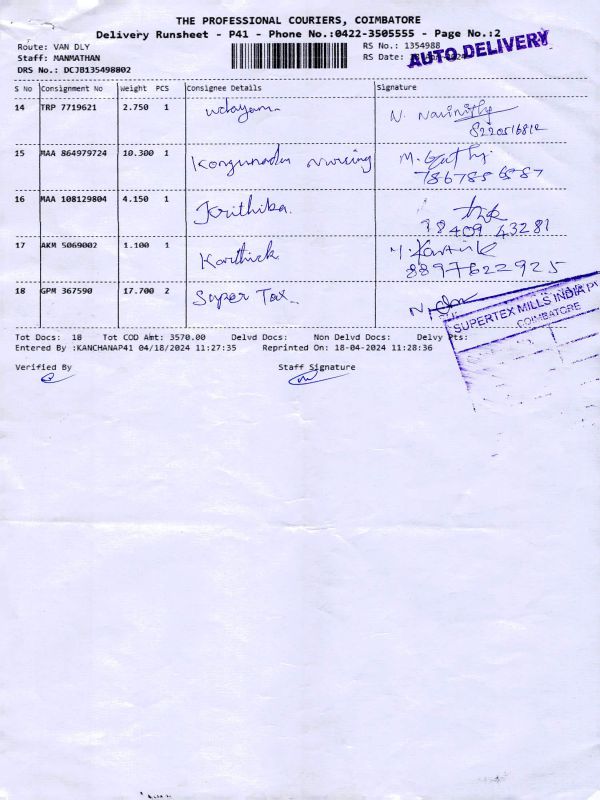 THE PROFESSIONAL COURIERS, COIMBATORE
Delivery Runsheet - P41 - Phone No.:0422-3505555 - Page No.:2
Route: VAN DLY RS No.: 1354988
Staff: MANMATHAN RS Date:
AUTO DELIVERY
DRS No.: DCJB135498802
S No Consignment No Weight PCS Consignee Details Signature
14 TRP 7719621 2.750 1 udayam N. Navinithy
8220516812
15 MAA 864979724 10.300 1 Kongunadu Nursing M.
7867856587
16 MAA 108129804 4.150 1 Krithika.
98409 43281
17 AKM 5069002 1.100 1 Karthick Y. Kartik
8897622925
18 GPM 367590 17.700 2 Super Tax
SUPERTEX MILLS INDIA
COIMBATORE
Tot Docs: 18 Tot COD Amt: 3570.00 Delvd Docs: Non Delvd Docs: Delvy Pts:
Entered By :KANCHANAP41 04/18/2024 11:27:35 Reprinted On: 18-04-2024 11:28:36
Verified By Staff Signature